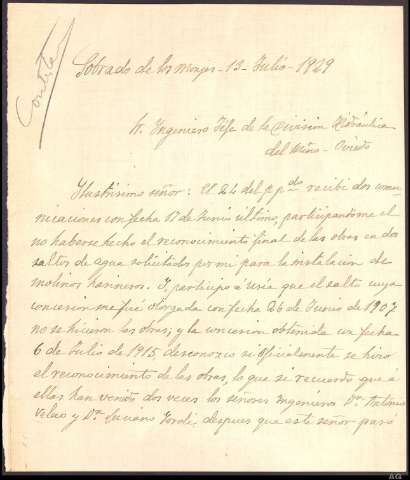 Contestada
Sobrado de los Monjes - 13 - Julio - 1929
Sr. Ingeniero Jefe de la División Hidráulica
del Miño - Oviedo
Ilustrísimo señor: El 24 del p.pdo recibi dos comu-
nicaciones con fecha 17 de Junio último, participandome el
no haberse hecho el reconocimiento final de las obras en dos
saltos de agua solicitados por mi para la instalación de
molinos harineros. I participo á usía que el salto cuya
concesion me fué otorgada con fecha 26 de Junio de 1907
no se hicieron las obras; y la concesion obtenida con fecha
6 de Julio de 1915, desconozco si oficialmente se hizo
el reconocimiento de las obras, lo que si recuerdo que á
ellas han venido dos veces los señores Ingenieros Dn. Antonio
y Dn. Luciano despues que este señor pasó
AG